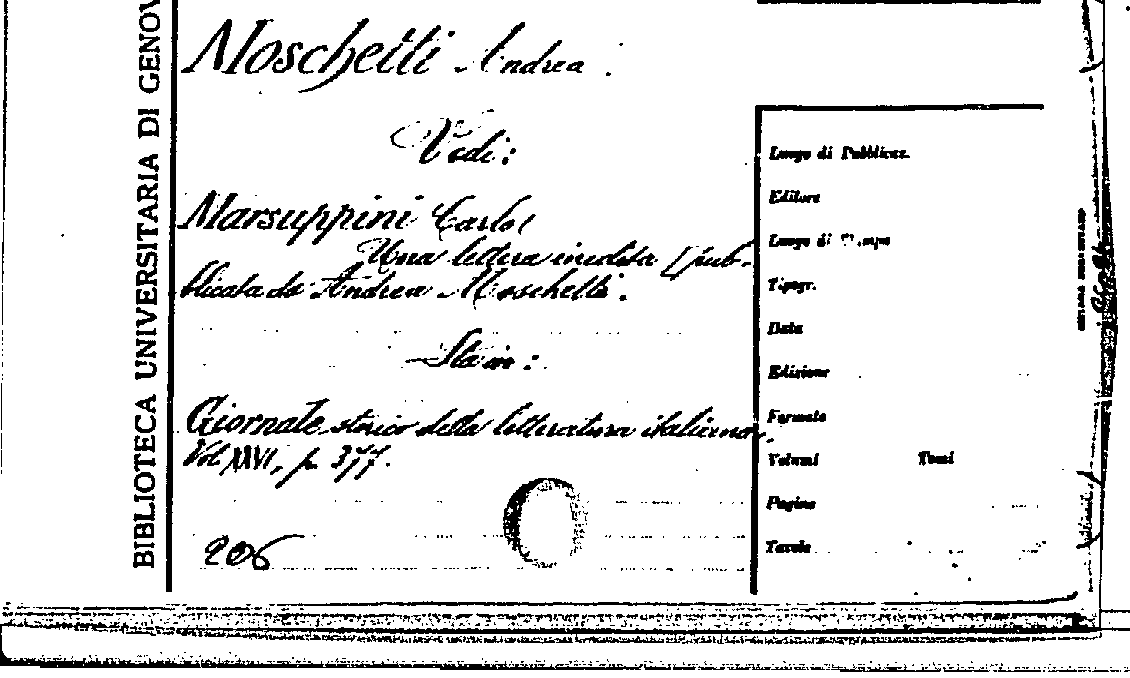 BIBLIOTECA UNIVERSITARIA DI GENOV
Moschetti Andrea.
Vedi:
Marsuppini Carlo
Una lettera inedita [pub-
blicata da Andrea Moschetti.
Sta in:
Giornale storico della letteratura italiana,
Vol XXVI, p. 377.
206
Luogo di Pubblicaz.
Editore
Luogo di Stampa
Tipogr.
Data
Edizione
Formato
Volumi Tomi
Pagine
Tavole